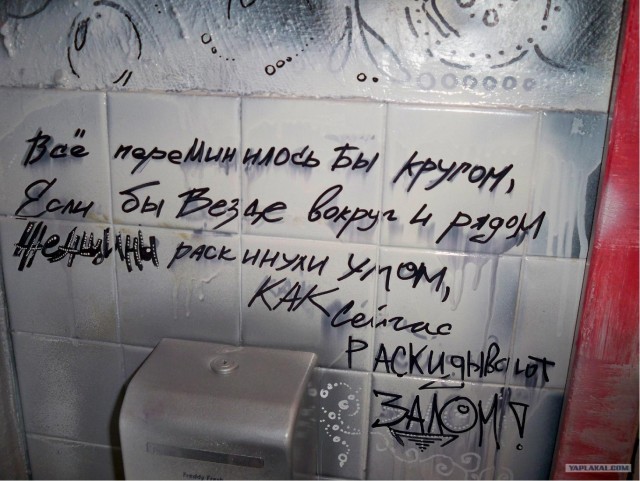 Всё переминилось бы кругом,
Если бы везде вокруг и рядом
Женщины раскинули умом,
КАК сейчас
РАСКИдывают
ЗАДОМ!
Freddy Fresh
YAPLAKAL.COM